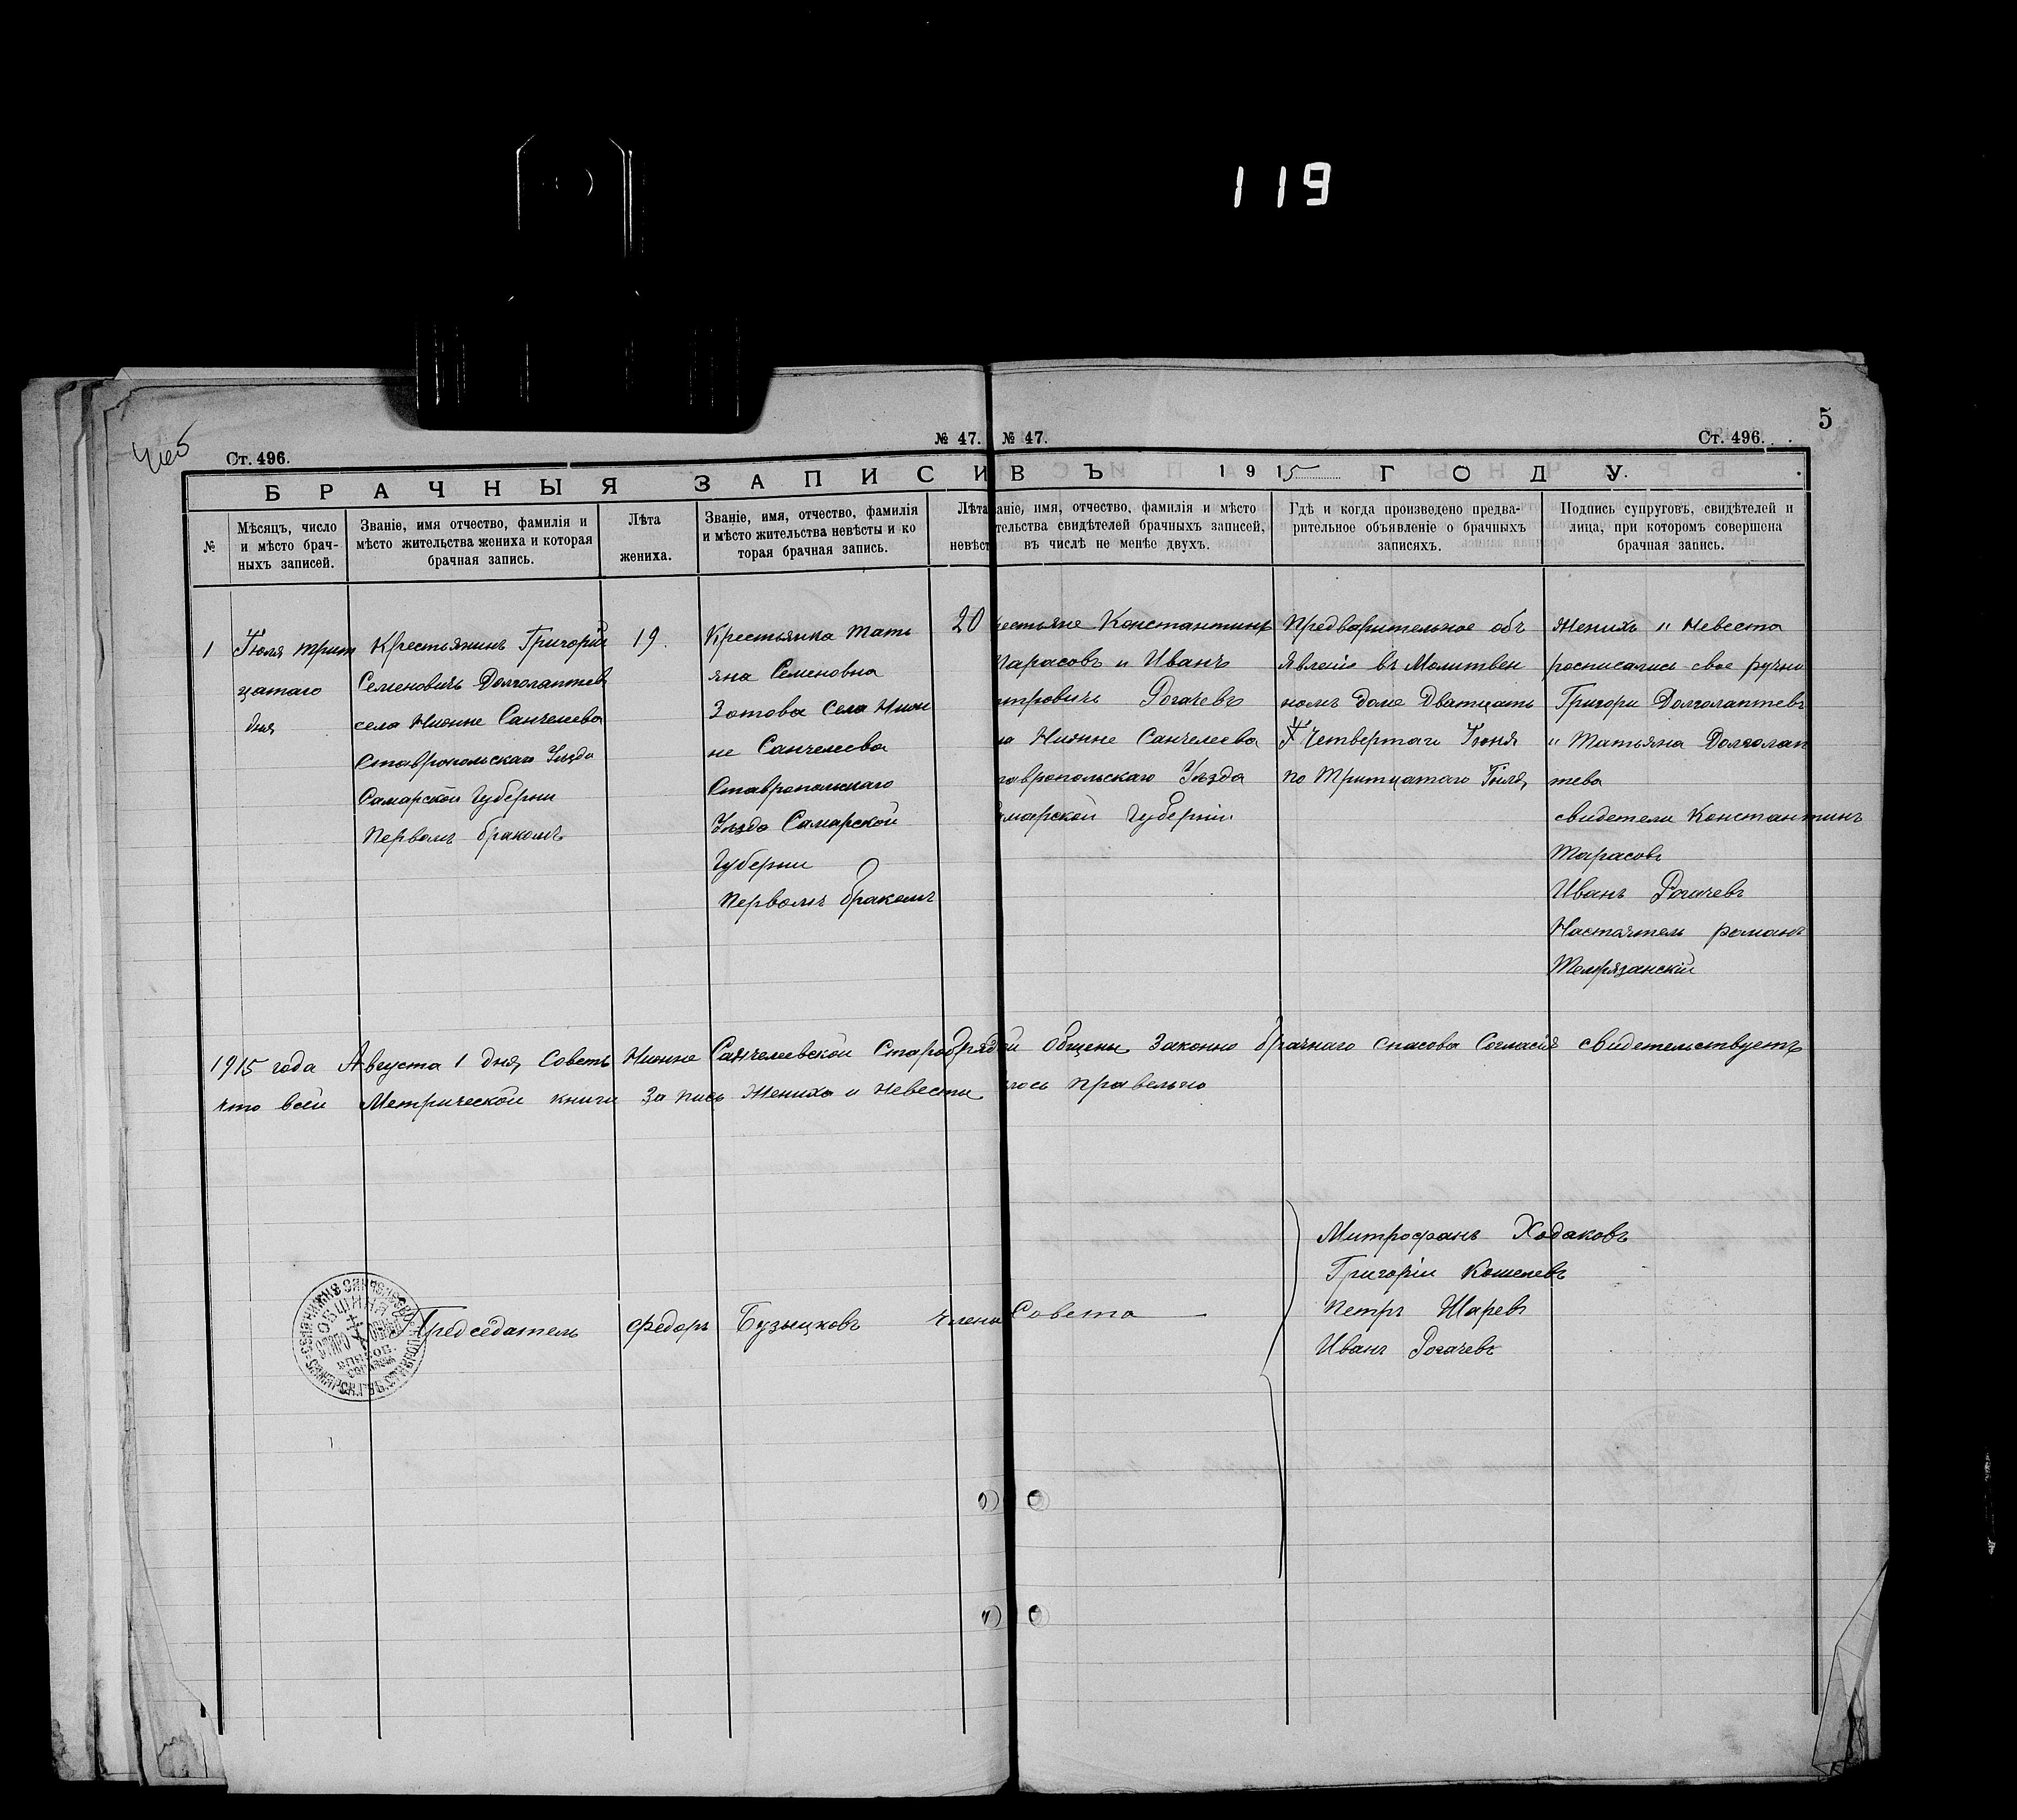 119
5
Ст. 496.
№ 47.
№ 47.
Ст. 496.
БРАЧНЫЯ ЗАПИСИ
ВЪ 1915 ГОДУ.
№
Мѣсяцъ, число
и мѣсто брач-
ныхъ записей.
Званіе, имя отчество, фамилія и
мѣсто жительства жениха и которая
брачная запись.
Лѣта
жениха.
Званіе, имя, отчество, фамилія
и мѣсто жительства невѣсты и ко
торая брачная запись.
Лѣта
невѣст
аніе, имя, отчество, фамилія и мѣсто
тельства свидѣтелей брачныхъ записей,
въ числѣ не менѣе двухъ.
Гдѣ и когда произведено предва-
рительное объявленіе о брачныхъ
записяхъ.
Подпись супруговъ, свидѣтелей и
лица, при которомъ совершена
брачная запись.
1
Іюля трит
цатаго
дня
Крестьянинъ Григорій
Семеновичъ Долголаптев
села Нижне Санчелеева
Ставропольскаго Уѣзда
Самарской Губернии
Первомъ бракомъ
19.
Крестьянка Тать
яна Семеновна
Зотова Села Ниж
не Санчелеева
Ставропольскаго
Уѣзда Самарской
Губернии
Первомъ бракомъ
20
рестьяне Константинъ
Тарасовъ и Иванъ
тровичъ Рогачевъ
ла Нижне Санчелеева
тавропольскаго Уѣзда
амарской Губерніи
Предварительное объ
явленіе въ Молитвен
номъ доме Двадцать
Четвертаго Іюня
по Тритцатаго Іюля,
Женихъ и Невеста
росписались свое ручно
Григори Долголаптевъ
и Татьяна Долголап
тева
свидетели Константинъ
Тарасовъ
Иванъ Рогачевъ
Настоятель романъ
1915 года Августа 1 дня, Советъ Нижне Санчелеевской Старообрядой общены Законно брачнаго Спасова Согласія свидетельствуетъ
что всей Метрической книги Запись Жениха и Невесты лось правельно
Митрофанъ Ходаковъ
Григоріи Кошелевъ
Петръ Шаревъ
Иванъ Рогачевъ
Председатель федоръ Бузыцковъ члены Совета